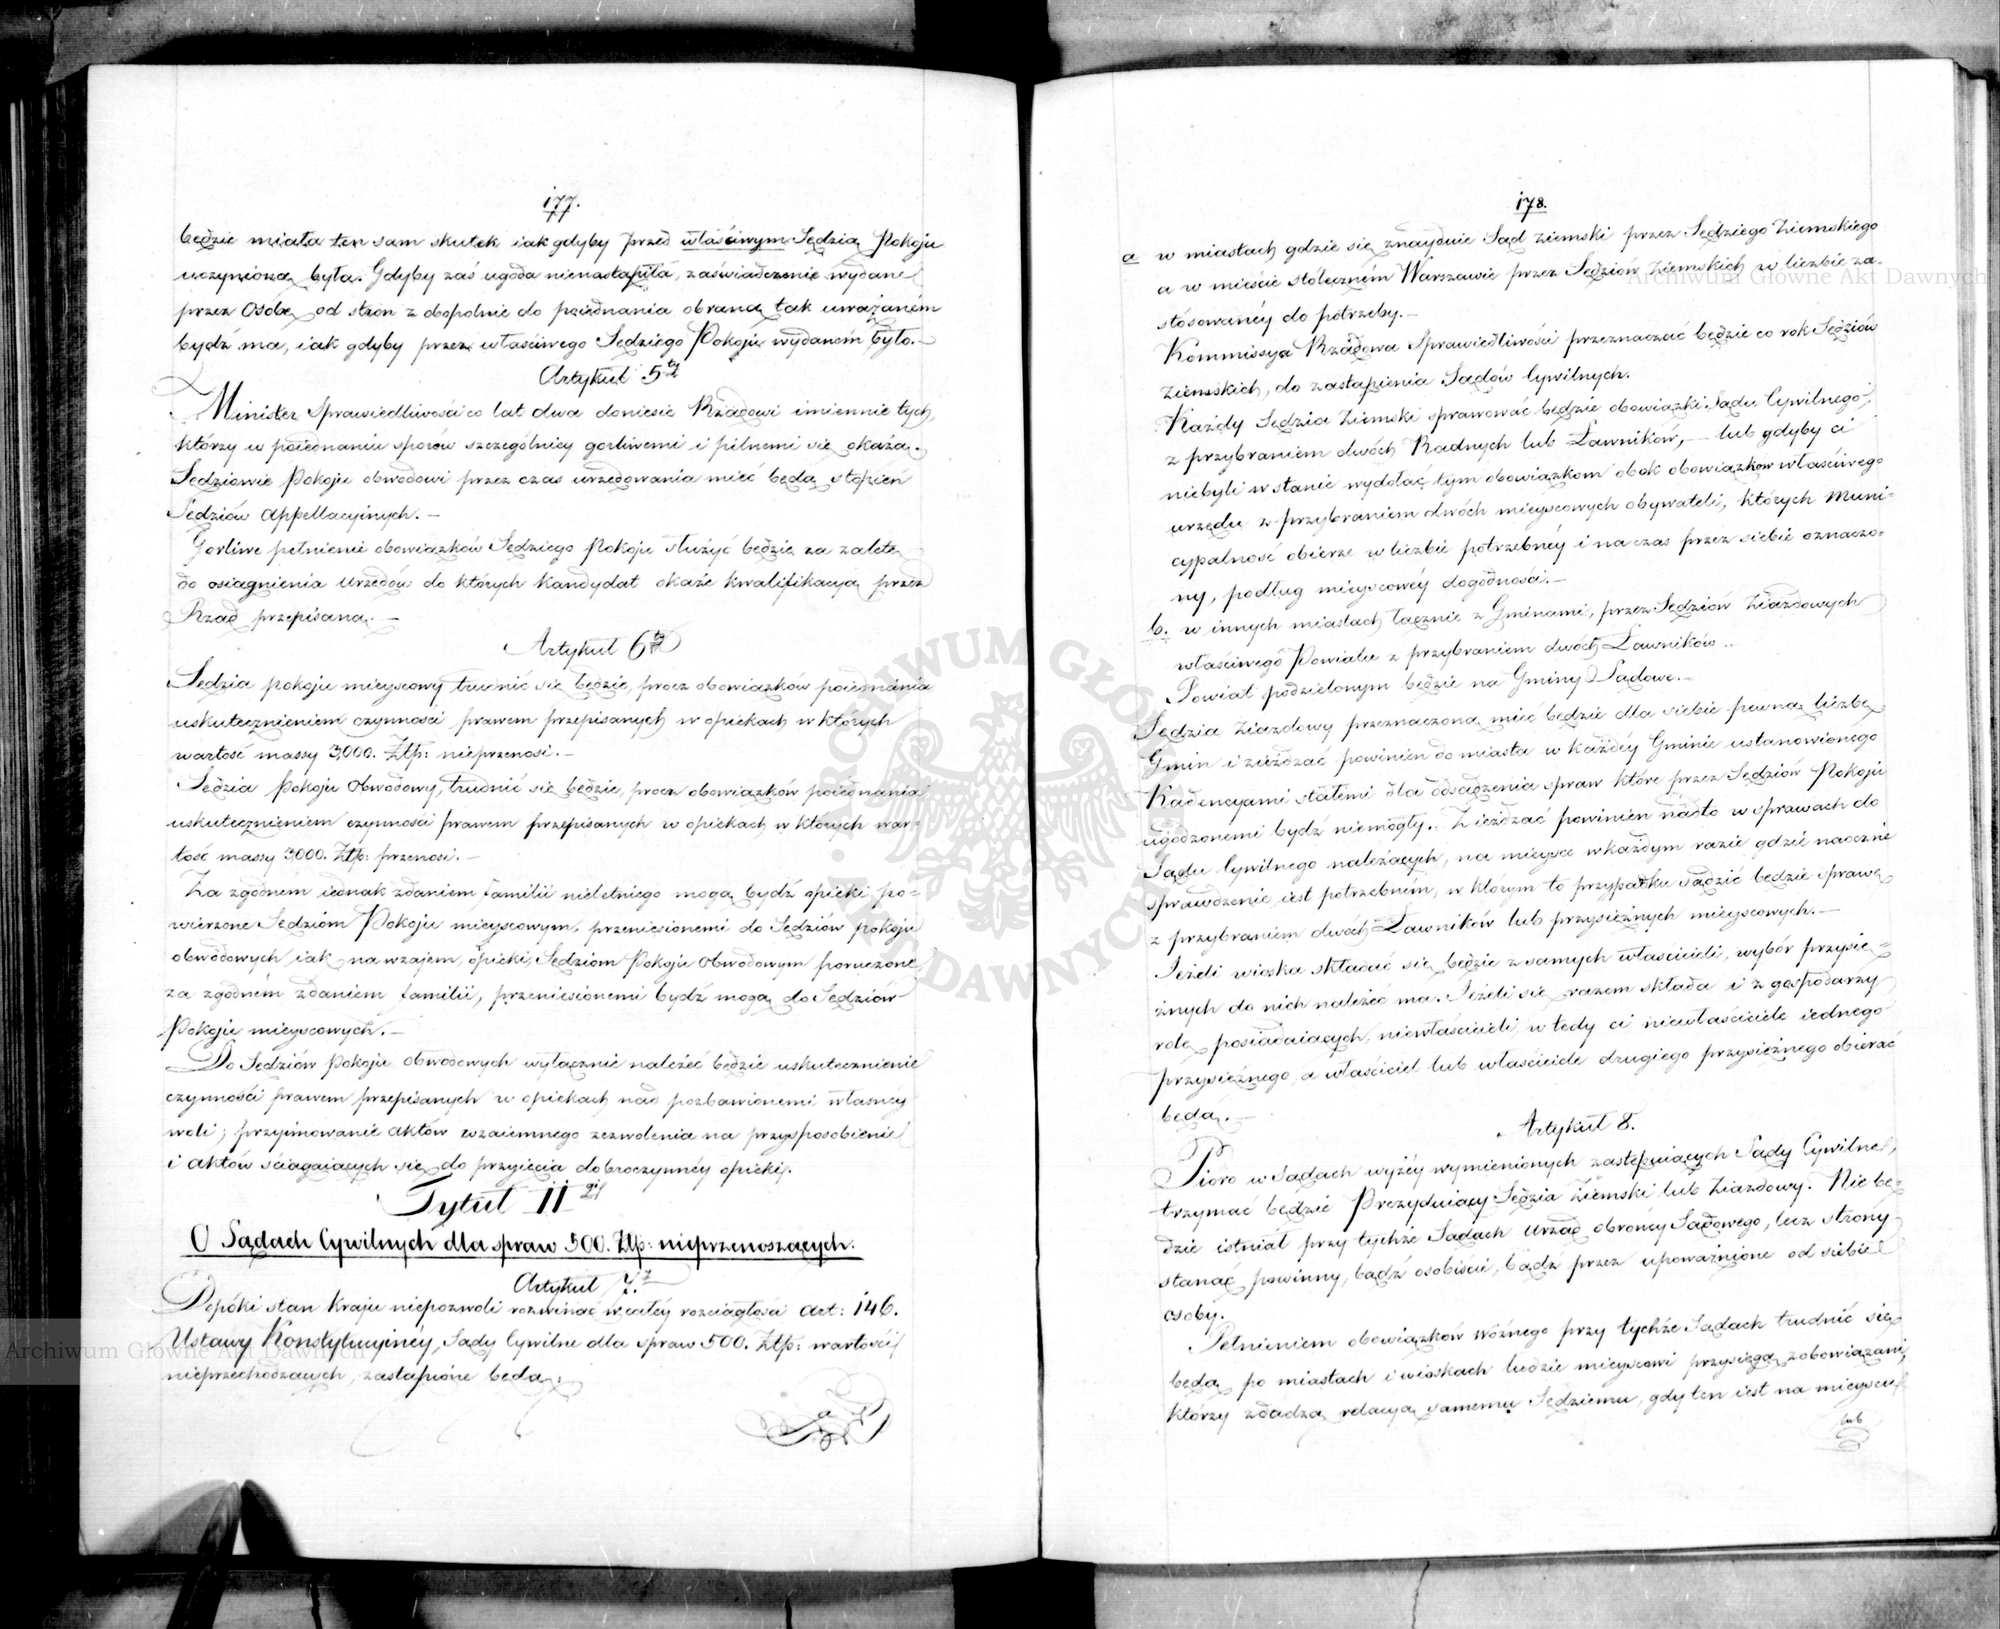 177.
będzie miała ten sam skutek iak gdyby przed właściwym Sędzią Pokoju
uczynioną była. Gdyby zaś ugoda nienastąpiła, zaświadczenie wydane
przez Osobę od stron z dopolnie do poiednania obraną tak uważaném
bydź ma, iak gdyby przez właściwego Sędziego Pokoju wydaném było.
Artykuł 5ty
Minister Sprawiedliwości co lat dwa doniesie Rządowi imiennie tych,
którzy w poiednaniu sporów szczególniey gorliwemi i pilnemi się okażą.
Sędziowie Pokoju obwodowi przez czas urzędowania mieć będą stopień
Sędziów Appellacyinych. —
Gorliwe pełnienie obowiązków Sędziego Pokoju służyć będzie za zaletę
do osiągnienia urzędów do których kandydat okaże kwalifikacyą przez
Rząd przepisaną. —
Artykuł 6ty
Sędzia pokoju mieyscowy trudnić się będzie, prócz obowiązków poiednania
uskutecznieniem czynności prawem przepisanych w opiekach w których
wartość massy 3,000. Złp: nieprzenosi. —
Sędzia Pokoju Obwodowy, trudnić się będzie, prócz obowiązków poiednania
uskutecznieniem czynności prawem przepisanych w opiekach w których war-
tość massy 3000. Złp: przenosi. —
Za zgodnem iednak zdaniem familii nieletniego mogą bydź opieki po-
wierzone Sędziom Pokoju mieyscowym, przeniesionemi do Sędziów pokoju
obwodowych iak nawzajem, opieki, Sędziom Pokoju Obwodowym poruczone
za zgodném zdaniem familii, przeniesionemi bydź mogą do Sędziów
Pokoju mieyscowych. —
Do Sędziów Pokoju obwodowych wyłącznie należeć będzie uskutecznienie
czynności prawem przepisanych w opiekach nad pozbawionemi własney
woli; przyimowanie aktów wzaiemnego zezwolenia na przysposobienie
i aktów ściągaiących się do przyięcia dobroczynnéy opieki.
Tytuł IIgi
O Sądach Cywilnych dla spraw 500. Złp: nieprzenoszących.
Artykuł 7.
Dopóki stan kraju niepozwoli rozwinąć w całéy rozciągłości art: 146.
Ustawy Konstytucyiney, Sądy Cywilne dla spraw 500. Złp: wartości
nieprzechodzących, zastąpione będą:
a
178.
a w miastach gdzie się znayduie Sąd ziemski przez Sędziego Ziemskiego
a w mieście stołeczném Warszawie przez Sędziów Ziemskich w liczbie za-
stósowanéy do potrzeby. —
Kommissya Rządowa Sprawiedliwości przeznaczać będzie co rok Sędziów
ziemskich, do zastąpienia Sądów Cywilnych.
Każdy Sędzia Ziemski sprawować będzie obowiązki Sądu Cywilnego,
z przybraniem dwóch Radnych lub Ławników, — lub gdyby ci
niebyli w stanie wydołać tym obowiązkom obok obowiązków właściwego
urzędu z przybraniem dwóch mieyscowych obywateli, których Muni-
cypalność obierze w liczbie potrzebnéy i na czas przez siebie oznaczo-
ny, podług mieyscowéy dogodności. —
b. w innych miastach łącznie z Gminami, przez Sędziów Ziazdowych
właściwego Powiatu z przybraniem dwóch Ławników..
Powiat podzielonym będzie na Gminy Sądowe. —
Sędzia Ziazdowy przeznaczoną mieć będzie dla siebie pewną liczbę
Gmin i zieżdzać powinien do miasta w każdéy Gminie ustanowionego
Kadencyami stałemi dla odsądzenia spraw które przez Sędziów Pokoju
ugodzonemi bydź niemogły. Zieżdzać powinien nadto w sprawach do
Sądu Cywilnego należących, na mieysce w każdym razie gdzie naoczne
sprawdzenie iest potrzebném, w którym to przypadku sądzić będzie sprawę
z przybraniem dwóch Ławników lub przysiężnych mieyscowych. —
Jeżeli wioska składać się będzie z samych właścicieli, wybór przysię-
żnych do nich należeć ma. Jeżeli się razem składa i z gospodarzy
rolę posiadaiących, niewłaścicieli, w tedy ci niewłaściciele iednego
przysiężnego, a właściciel lub właściciele drugiego przysiężnego obierać
będą. —
Artykuł 8.
Pioro w Sądach wyżéy wymienionych zastępuiących Sądy Cywilne,
trzymać będzie Prezyduiący Sędzia Ziemski lub Ziazdowy. Nie bę-
dzie istniał przy tychże Sądach Urząd obrońcy Sądowego, lecz strony
stanąć powinny, bądź osobiście, bądź przez upoważnione od siebie
osoby.
Pełnieniem obowiązków Woźnego przy tychże Sądach trudnić się
będą po miastach i wioskach ludzie mieyscowi przysięgą zobowiązani,
którzy zdadzą relacyą samemu Sędziemu, gdy ten iest na mieyscu
lub
ARCHIWUM GŁÓWNE AKT DAWNYCH
Archiwum Główne Akt Dawnych
Archiwum Główne Akt Dawnych